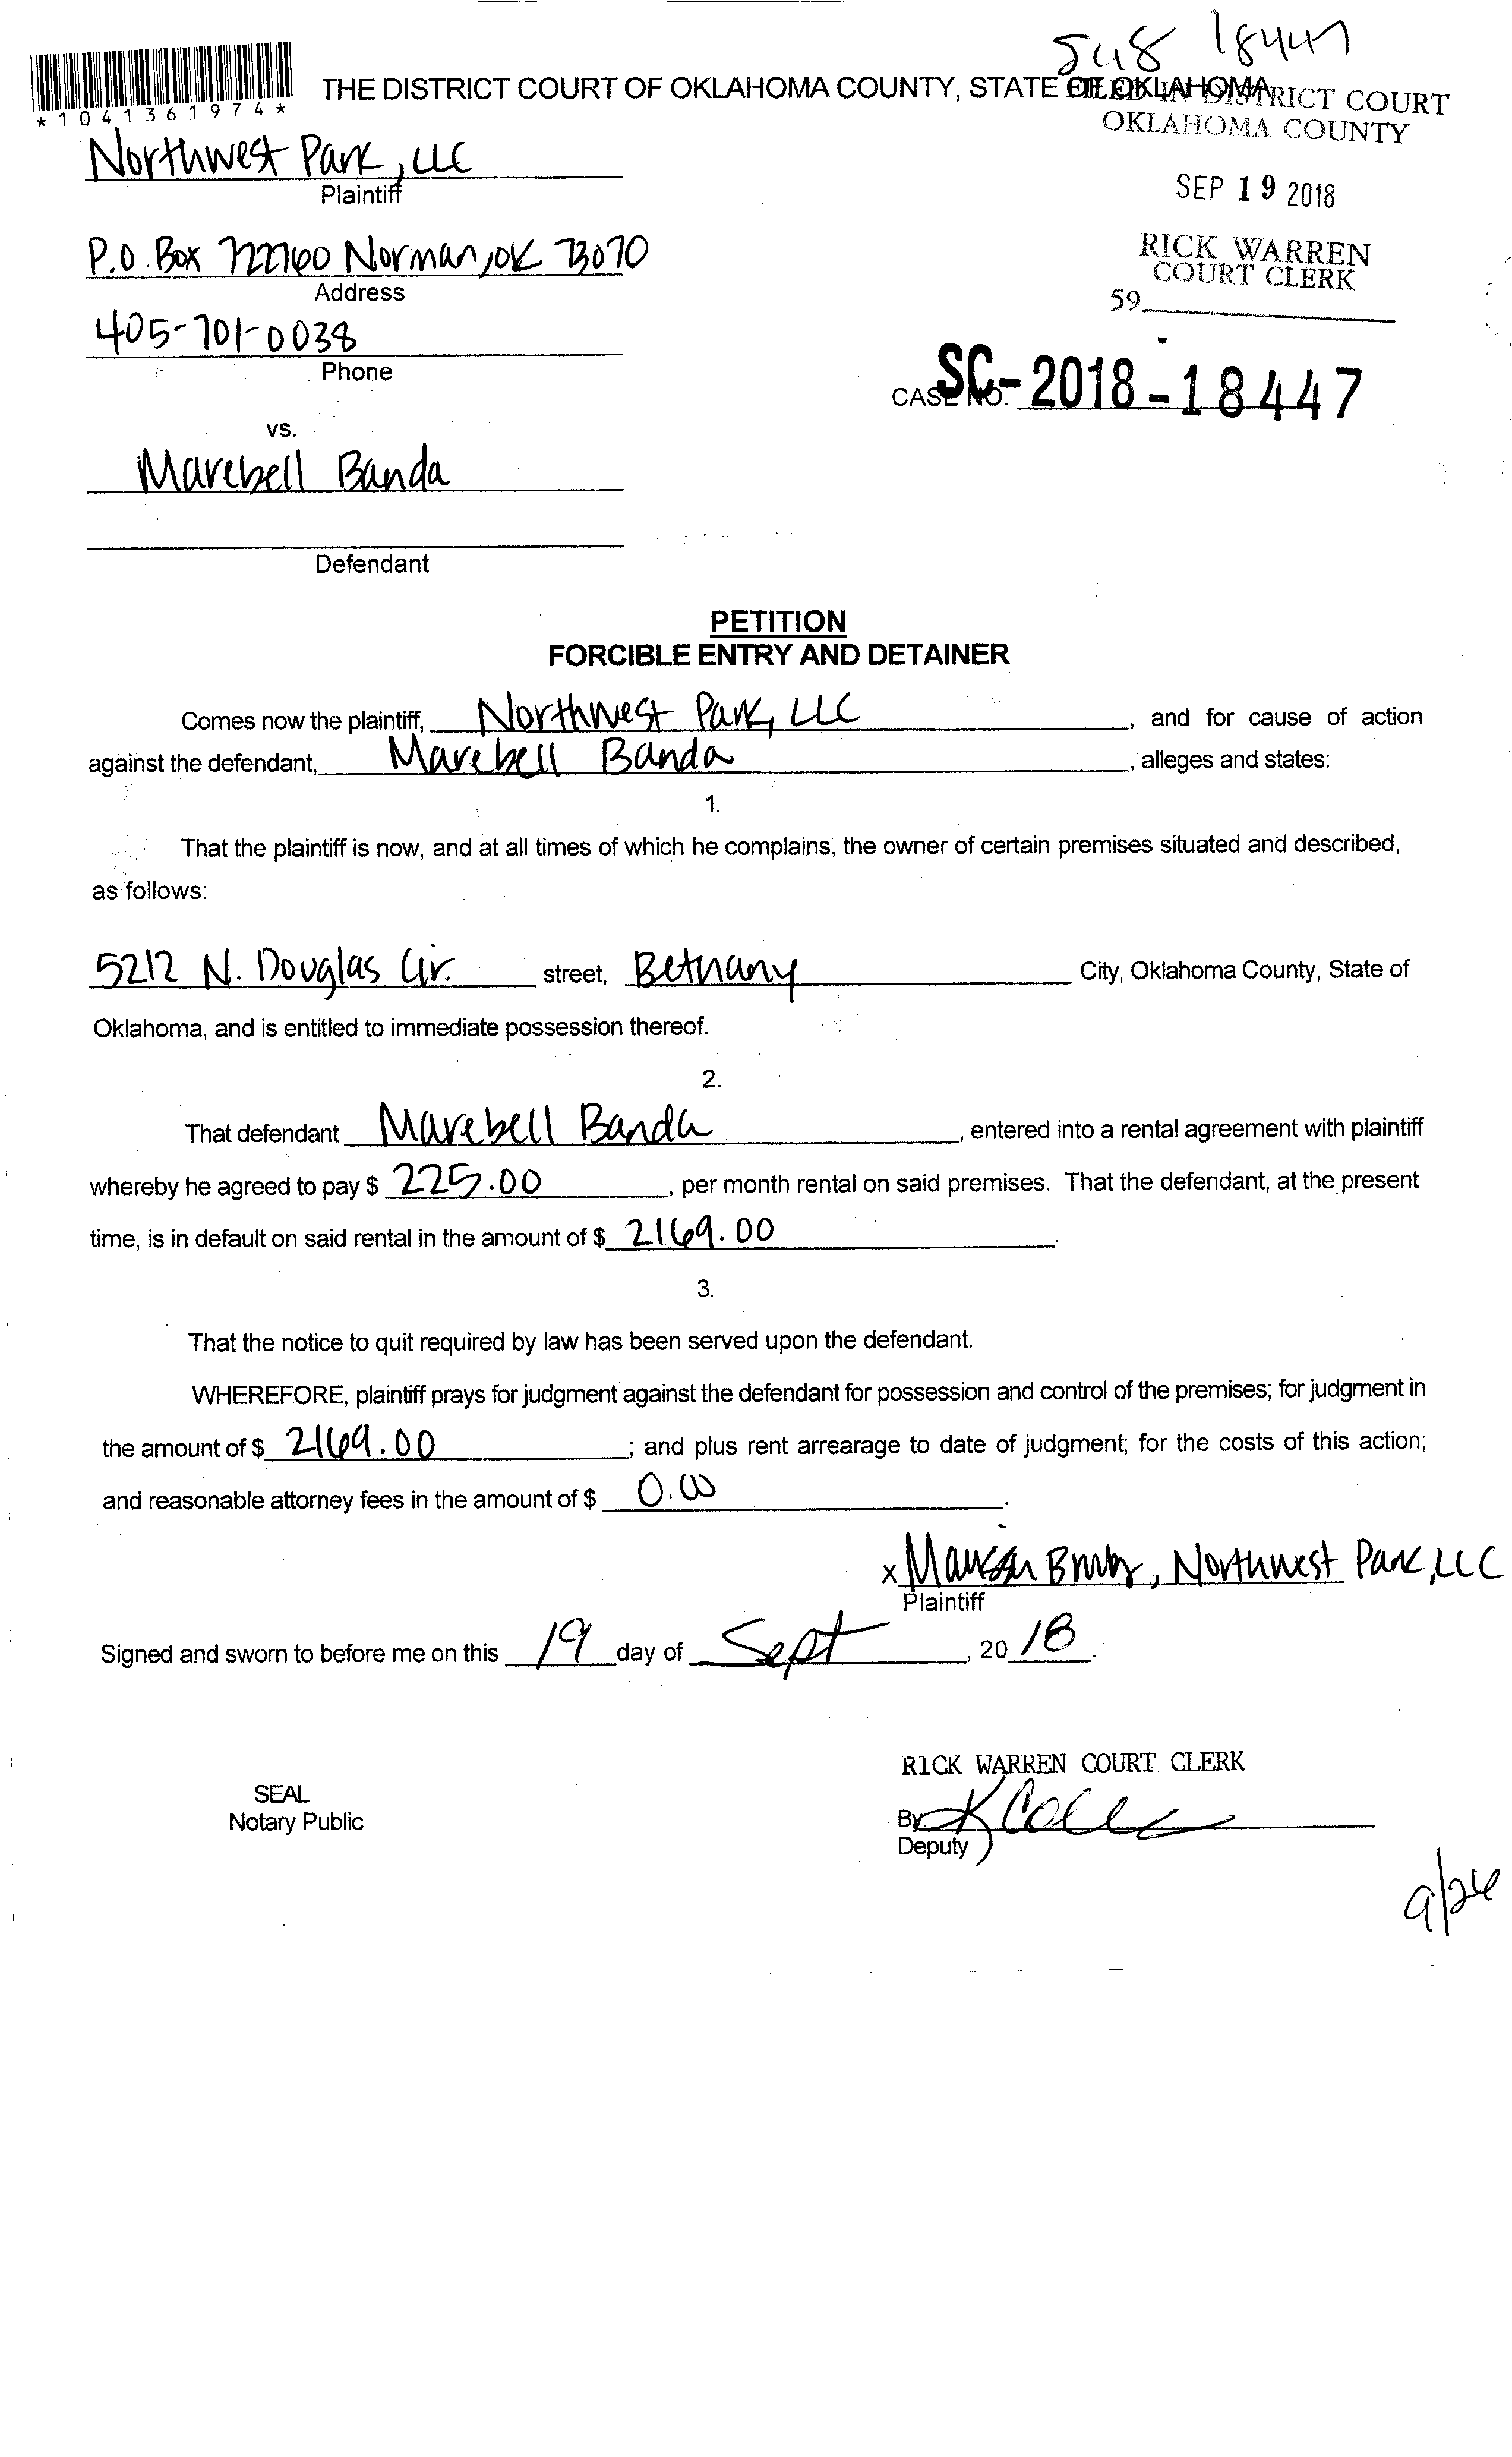 548 18447
*1041361974*
THE DISTRICT COURT OF OKLAHOMA COUNTY, STATE OF OKLAHOMA
FILED IN DISTRICT COURT
OKLAHOMA COUNTY
Northwest Park, LLC
Plaintiff
SEP 19 2018
P.O. Box 722760 Norman, OK 73070
Address
RICK WARREN
COURT CLERK
59
405-701-0038
Phone
CASE NO. SC-2018-18447
vs.
Marebell Banda
Defendant
PETITION
FORCIBLE ENTRY AND DETAINER
Comes now the plaintiff, Northwest Park, LLC, and for cause of action
against the defendant, Marebell Banda, alleges and states:
1.
That the plaintiff is now, and at all times of which he complains, the owner of certain premises situated and described,
as follows:
5212 N. Douglas Cir. street, Bethany City, Oklahoma County, State of
Oklahoma, and is entitled to immediate possession thereof.
2.
That defendant Marebell Banda, entered into a rental agreement with plaintiff
whereby he agreed to pay $ 225.00, per month rental on said premises. That the defendant, at the present
time, is in default on said rental in the amount of $ 2169.00.
3.
That the notice to quit required by law has been served upon the defendant.
WHEREFORE, plaintiff prays for judgment against the defendant for possession and control of the premises; for judgment in
the amount of $ 2169.00; and plus rent arrearage to date of judgment; for the costs of this action;
and reasonable attorney fees in the amount of $ 0.00.
x Northwest Park, LLC
Plaintiff
Signed and sworn to before me on this 19 day of Sept, 2018.
RICK WARREN COURT CLERK
SEAL
Notary Public
By
Deputy
9/26